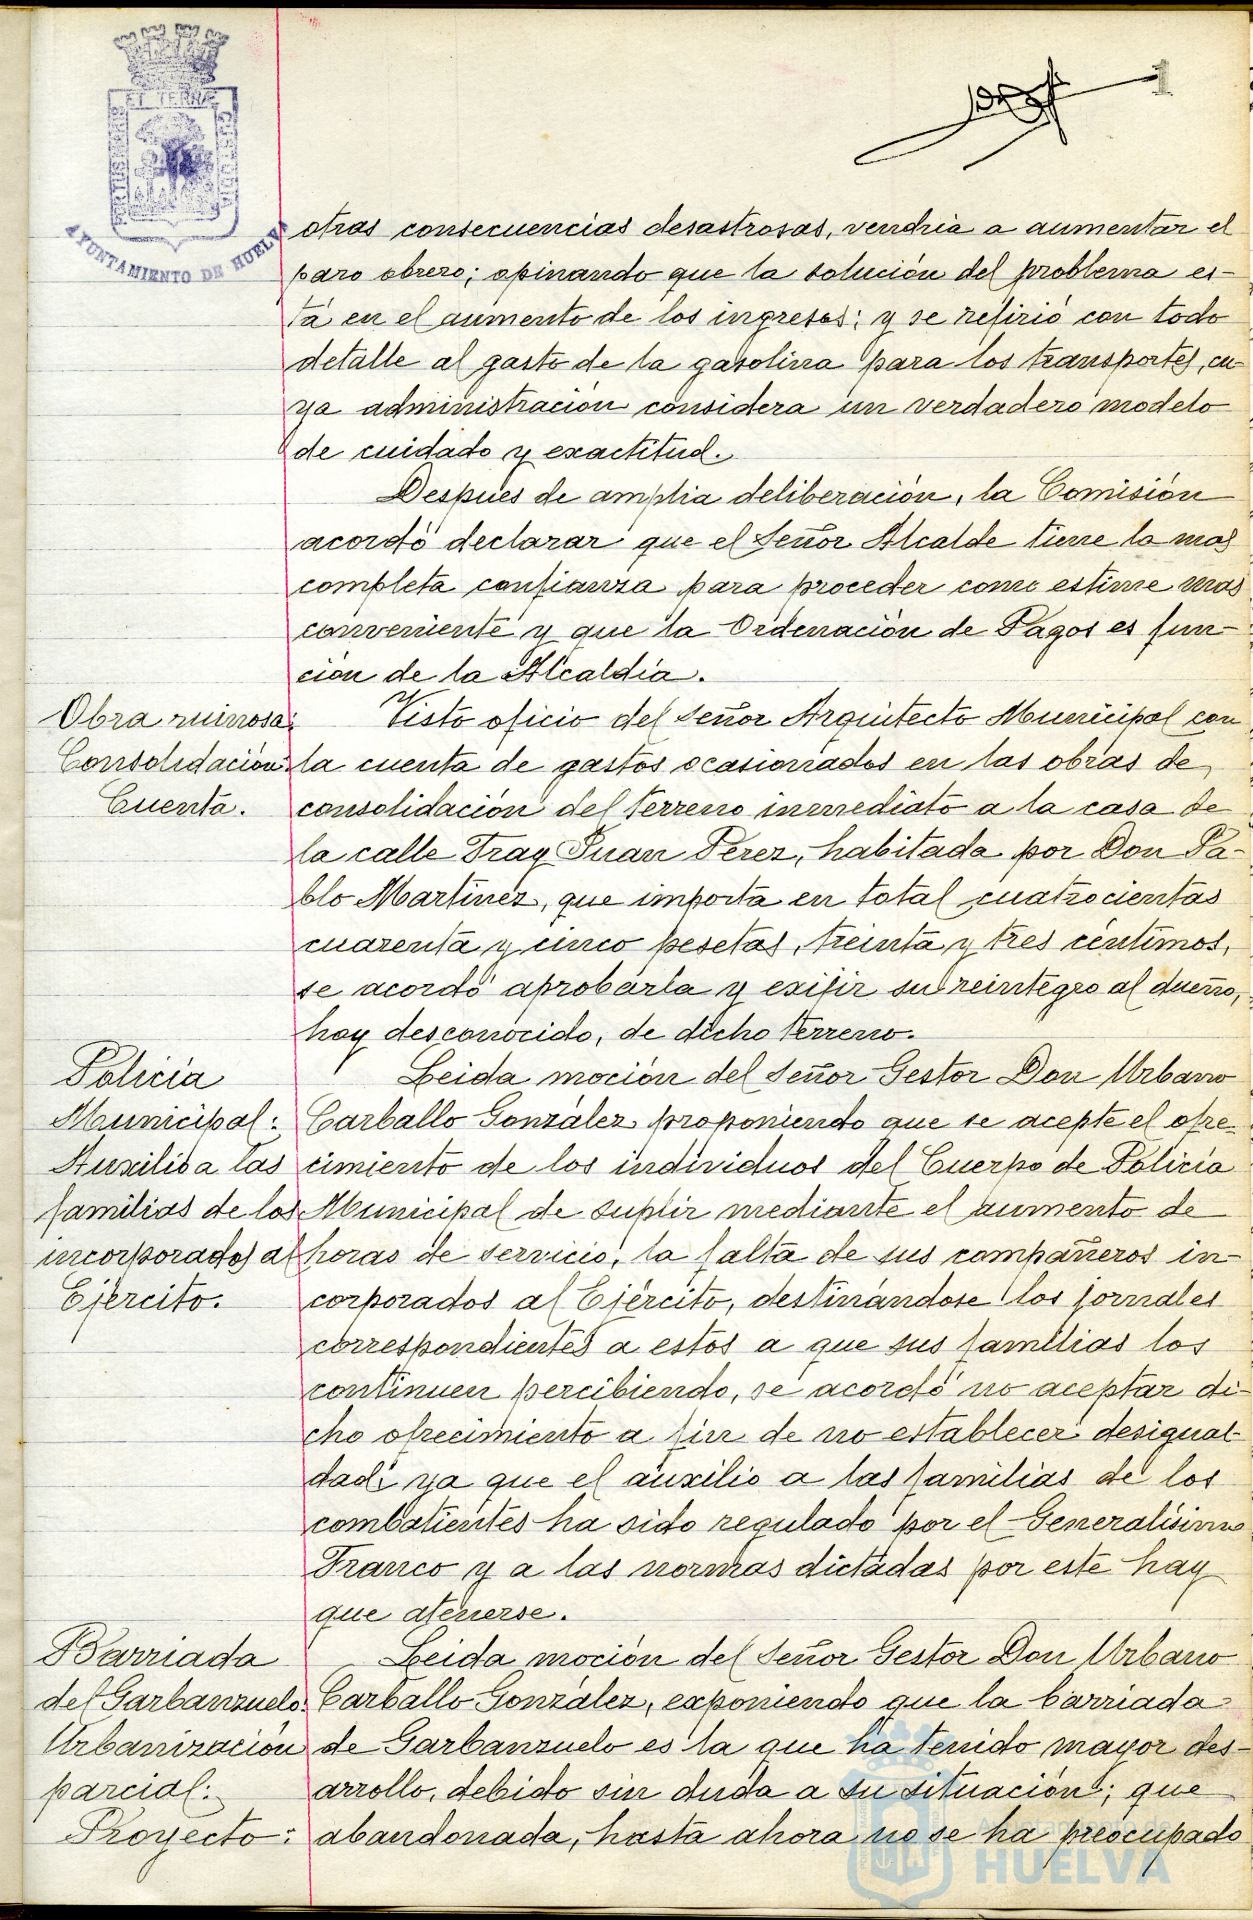 1
ET TERRÆ
PORTUS MARIS
CUSTODIA
AYUNTAMIENTO DE HUELVA
otras consecuencias desastrosas, vendria a aumentar el
paro obrero; opinando que la solución del problema es-
tá en el aumento de los ingresos; y se refirió con todo
detalle al gasto de la gasolina para los transportes, cu-
ya administración considera un verdadero modelo
de cuidado y exactitud.
Despues de amplia deliberación, la Comisión
acordó declarar que el Señor Alcalde tiene la mas
completa confianza para proceder como estime mas
conveniente y que la Ordenación de Pagos es fun-
ción de la Alcaldía.
Obra ruinosa:
Consolidación:
Cuenta.
Visto oficio del Señor Arquitecto Municipal con
la cuenta de gastos ocasionados en las obras de
consolidación del terreno inmediato a la casa de
la calle Fray Juan Perez, habitada por Don Pa-
blo Martinez, que importa en total cuatrocientas
cuarenta y cinco pesetas, treinta y tres céntimos,
se acordó aprobarla y exijir su reintegro al dueño,
hoy desconocido, de dicho terreno.
Policía
Municipal:
Auxilio a las
familias de los
incorporados al
Ejército.
Leida moción del Señor Gestor Don Urbano
Carballo González, proponiendo que se acepte el ofre-
cimiento de los individuos del Cuerpo de Policía
Municipal de suplir mediante el aumento de
horas de servicio, la falta de sus compañeros in-
corporados al Ejército, destinándose los jornales
correspondientes a estos a que sus familias los
continuen percibiendo, se acordó no aceptar di-
cho ofrecimiento a fin de no establecer desigual-
dad; ya que el auxilio a las familias de los
combatientes ha sido regulado por el Generalísimo
Franco y a las normas dictadas por este hay
que atenerse.
Barriada
del Garbanzuelo:
Urbanización
parcial:
Proyecto:
Leida moción del Señor Gestor Don Urbano
Carballo González, exponiendo que la barriada
de Garbanzuelo es la que ha tenido mayor des-
arrollo, debido sin duda a su situación; que
abandonada, hasta ahora no se ha preocupado
Ayuntamiento de
HUELVA